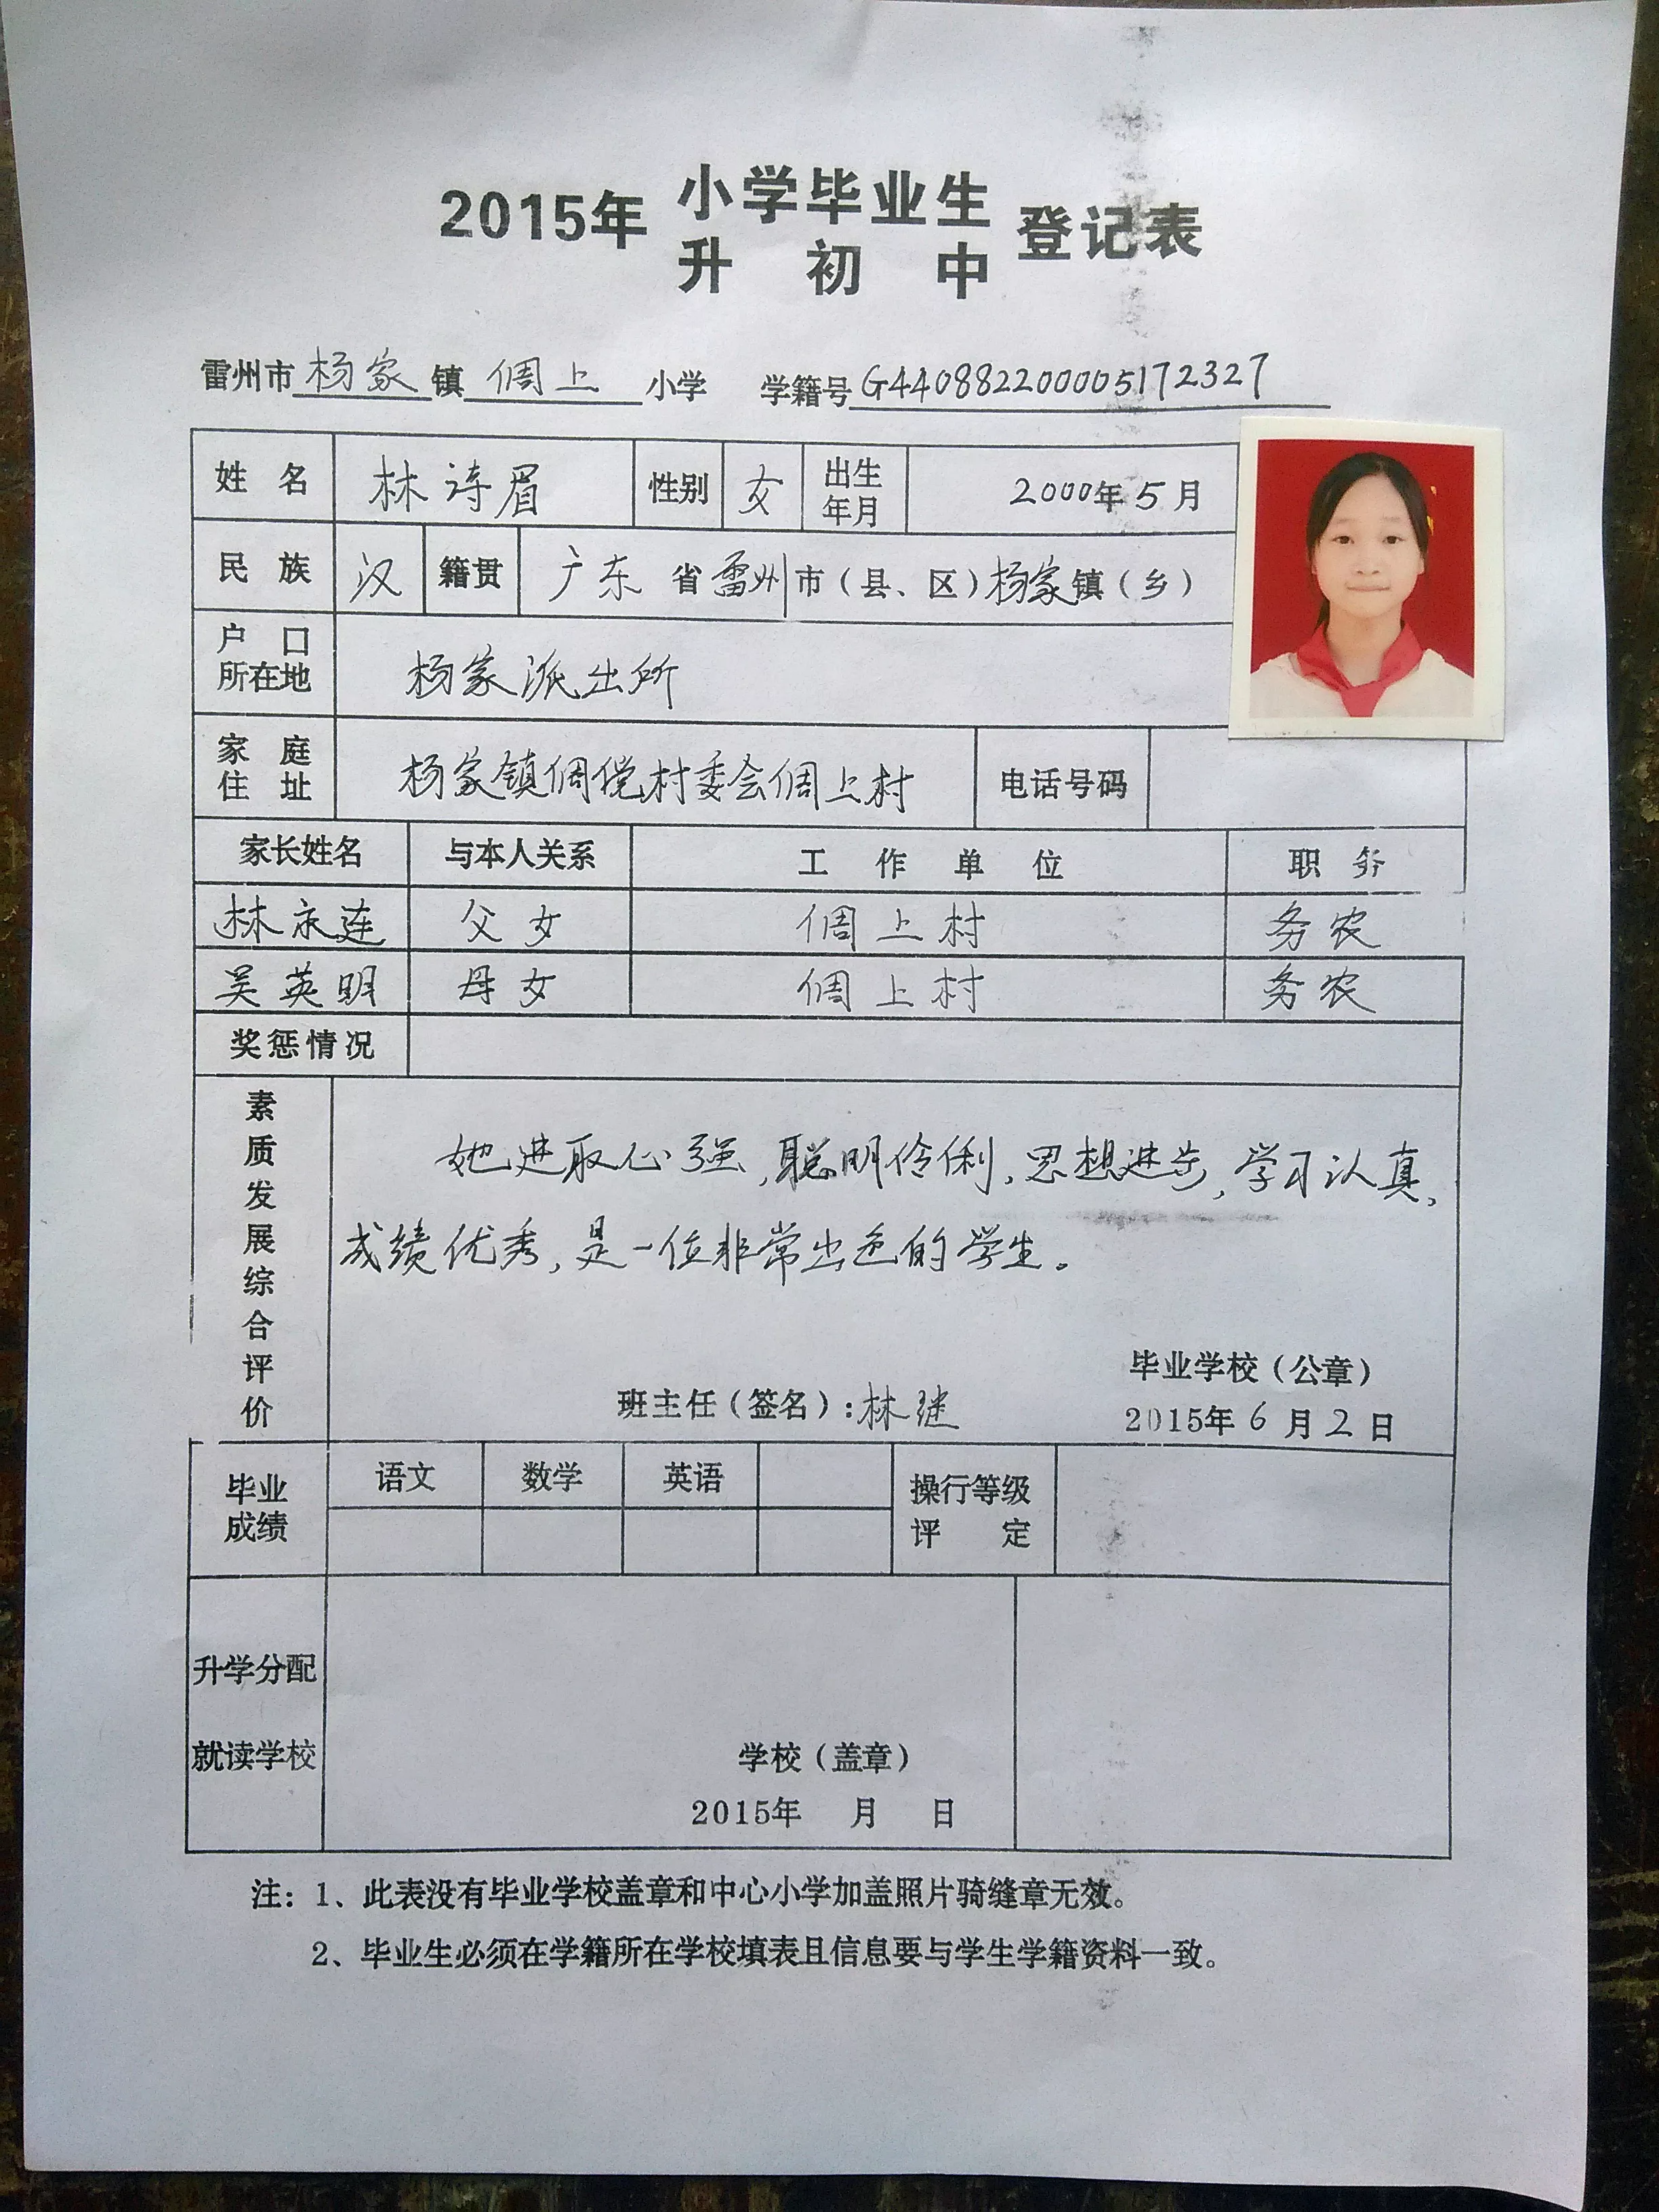 2015年 小学毕业生 登记表
升初中
雷州市 杨家 镇 倜上 小学 学籍号 G440882200005172327
姓名 林诗眉 性别 女 出生年月 2000年5月
民族 汉 籍贯 广东省雷州市(县、区)杨家镇(乡)
户口所在地 杨家派出所
家庭住址 杨家镇倜傥村委会倜上村 电话号码
家长姓名 与本人关系 工作单位 职务
林永连 父女 倜上村 务农
吴英明 母女 倜上村 务农
奖惩情况
素质发展综合评价
她进取心强,聪明伶俐,思想进步,学习认真,
成绩优秀,是一位非常出色的学生。
毕业学校(公章)
班主任(签名):林继 2015年6月2日
毕业成绩 语文 数学 英语 操行等级评定
升学分配
就读学校 学校(盖章)
2015年 月 日
注:1、此表没有毕业学校盖章和中心小学加盖照片骑缝章无效。
2、毕业生必须在学籍所在学校填表且信息要与学生学籍资料一致。